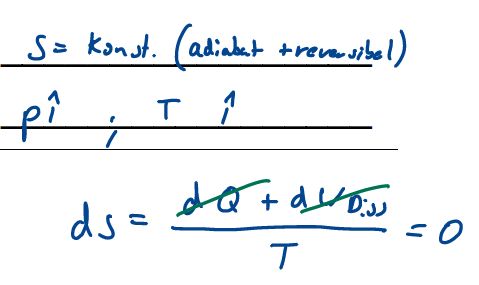 s = konst. (adiabat + reversibel)
p ↑ ; T ↑
ds = (dQ + dWDiss) / T = 0